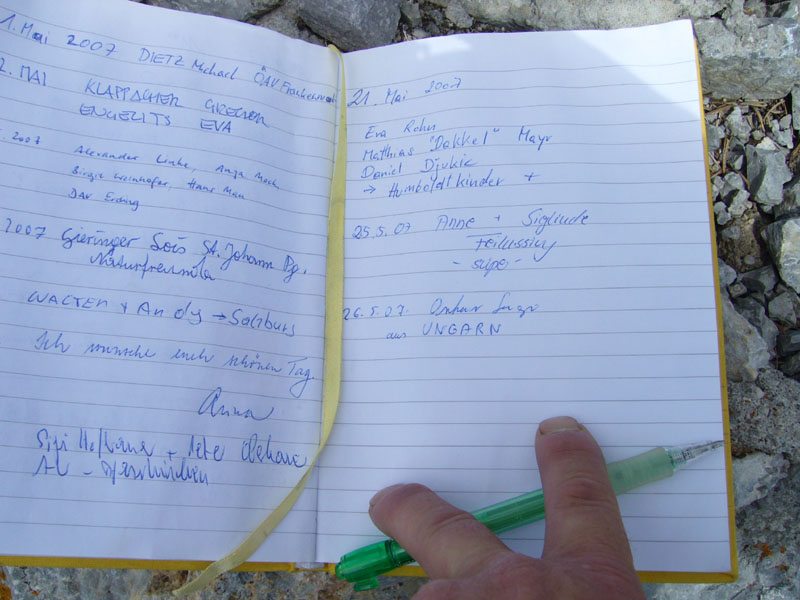 1. Mai 2007 DIETZ Michael ÖAV
2. MAI KLAPPACHER GREGOR
ENGELITS EVA
2007 Alexander Linke, Anja
Birgit Weinhofer, Hans Mair
DAV Erding
2007 Gieringer Lois St. Johann Pg.
Naturfreunde
WALTER + Andy → Salzburg
Ich wünsche euch schönen Tag.
Anna
Sigi + 
AV -
21. Mai 2007
Eva Rohn
Matthias "Dakkel" Mayr
Daniel Djukic
→ Humboldtkinder +
25.5.07 Anne + Siglinde
- super -
26.5.07.
aus UNGARN